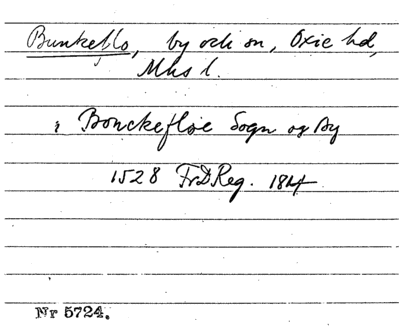 Bunkeflo, by och sn, Oxie hd,
Mhs l.
i Bonckefløe Sogn og By
1528 FrDReg. 184
Nr 5724.